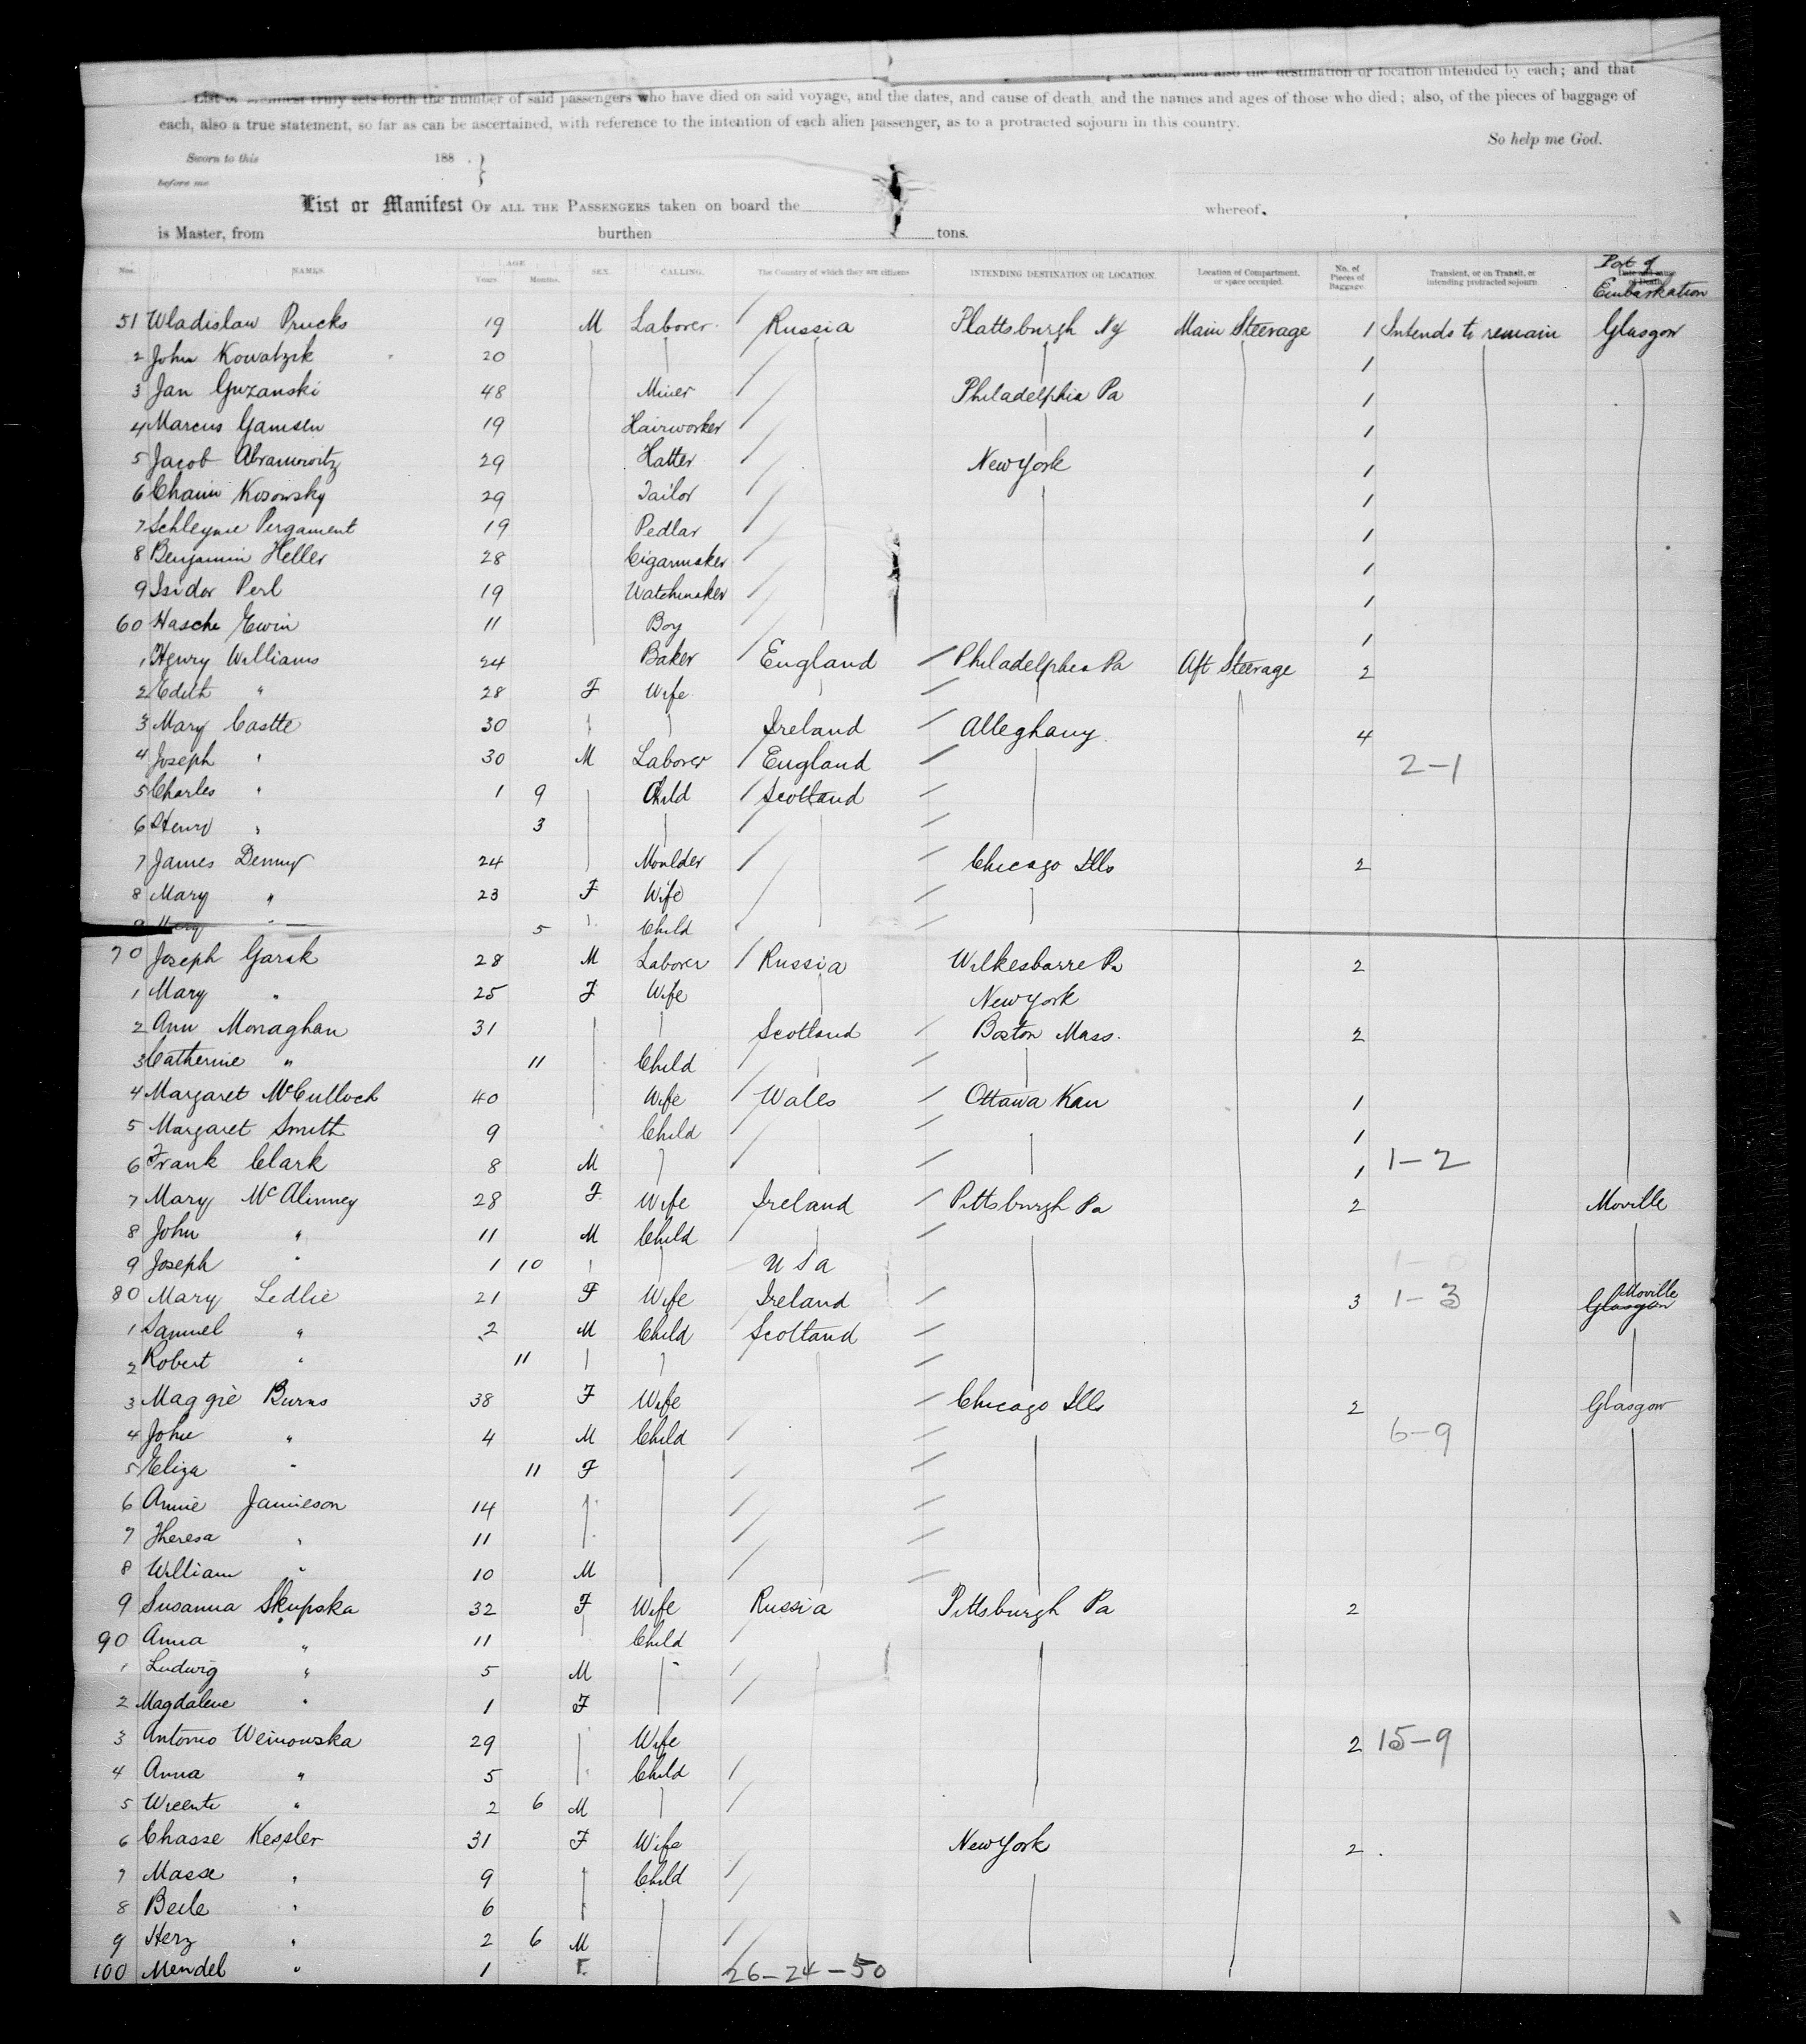 each, and also the destination or location intended by each; and that
List or Manifest truly sets forth the number of said passengers who have died on said voyage, and the dates, and cause of death and the names and ages of those who died; also, of the pieces of baggage of
each, also a true statement, so far as can be ascertained, with reference to the intention of each alien passenger, as to a protracted sojourn in this country.
So help me God.
Sworn to this 188 . }
before me
List or Manifest OF ALL THE PASSENGERS taken on board the whereof
is Master, from burthen tons.
Nos. NAMES. AGE Years Months. SEX. CALLING. The Country of which they are citizens INTENDING DESTINATION OR LOCATION. Location of Compartment, or space occupied. No. of Pieces of Baggage. Transient, or on Transit, or intending protracted sojourn Date and cause of Death Port of Embarkation
51 Wladislaw Prucks 19 M Laborer Russia Plattsburgh Ny Main Steerage 1 Intends to remain Glasgow
2 John Kowatzik 20 1
3 Jan Guzanski 48 Miner Philadelphia Pa 1
4 Marcus Gamsen 19 Hairworker 1
5 Jacob Abramowitz 29 Hatter New York 1
6 Chaim Kosowsky 29 Tailor 1
7 Schleyme Pergament 19 Pedlar 1
8 Benjamin Heller 28 Cigarmaker 1
9 Isidor Perl 19 Watchmaker 1
60 Hasche Ewin 11 Boy 1
1 Henry Williams 24 Baker England Philadelphia Pa Aft Steerage 2
2 Edith " 28 F Wife
3 Mary Castle 30 Ireland Alleghany 4
4 Joseph " 30 M Laborer England 2-1
5 Charles " 1 9 Child Scotland
6 Henry " 3
7 James Denny 24 Moulder Chicago Ills 2
8 Mary " 23 F Wife
9 Mary " 5 Child
70 Joseph Garsk 28 M Laborer Russia Wilkesbarre Pa 2
1 Mary " 25 F Wife New York
2 Ann Monaghan 31 Scotland Boston Mass. 2
3 Catherine " 11 Child
4 Margaret McCulloch 40 Wife Wales Ottawa Kan 1
5 Margaret Smith 9 Child 1
6 Frank Clark 8 M 1 1-2
7 Mary McAlinney 28 F Wife Ireland Pittsburgh Pa 2 Moville
8 John " 11 M Child
9 Joseph " 1 10 U S a 1-0
80 Mary Ledlie 21 F Wife Ireland 3 1-3 Glasgow Moville
1 Samuel " 2 M Child Scotland
2 Robert " 11
3 Maggie Burns 38 F Wife Chicago Ills 2 Glasgow
4 John " 4 M Child 6-9
5 Eliza " 11 F
6 Annie Jamieson 14
7 Theresa " 11
8 William " 10 M
9 Susanna Skupska 32 F Wife Russia Pittsburgh Pa 2
90 Anna " 11 Child
1 Ludwig " 5 M
2 Magdalene " 1 F
3 Antonio Weinowska 29 Wife 2 15-9
4 Anna " 5 Child
5 Wicenti " 2 6 M
6 Chasse Kessler 31 F Wife New York 2
7 Masse " 9 Child
8 Beile " 6
9 Herz " 2 6 M
100 Mendel " 1 F. 26-24-50